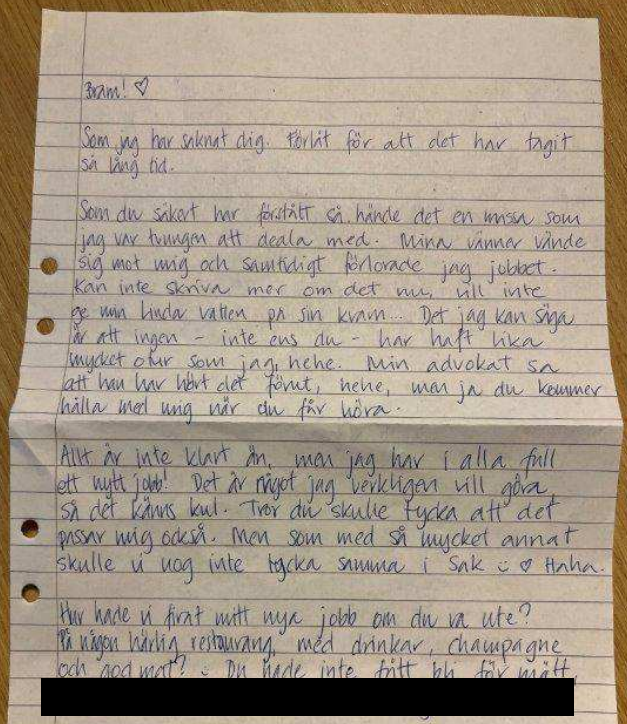 Bram! ♡
Som jag har saknat dig. Förlåt för att det har tagit
så lång tid.
Som du säkert har förstått så hände det en massa som
jag var tvungen att deala med. Mina vänner vände
sig mot mig och samtidigt förlorade jag jobbet.
Kan inte skriva mer om det nu, vill inte
ge min Linda vatten på sin kvarn... Det jag kan säga
är att ingen - inte ens du - har haft lika
mycket otur som jag, hehe. Min advokat sa
att han har hört det förut, hehe, men ja du kommer
hålla med mig när du får höra.
Allt är inte klart än, men jag har i alla fall
ett nytt jobb! Det är något jag verkligen vill göra,
så det känns kul. Tror du skulle tycka att det
passar mig också. Men som med så mycket annat
skulle vi nog inte tycka samma i sak :) ♡ Haha.
Hur hade vi firat mitt nya jobb om du va ute?
På någon härlig restaurang, med drinkar, champagne
och god mat? :) Du hade inte fått bli för mätt,